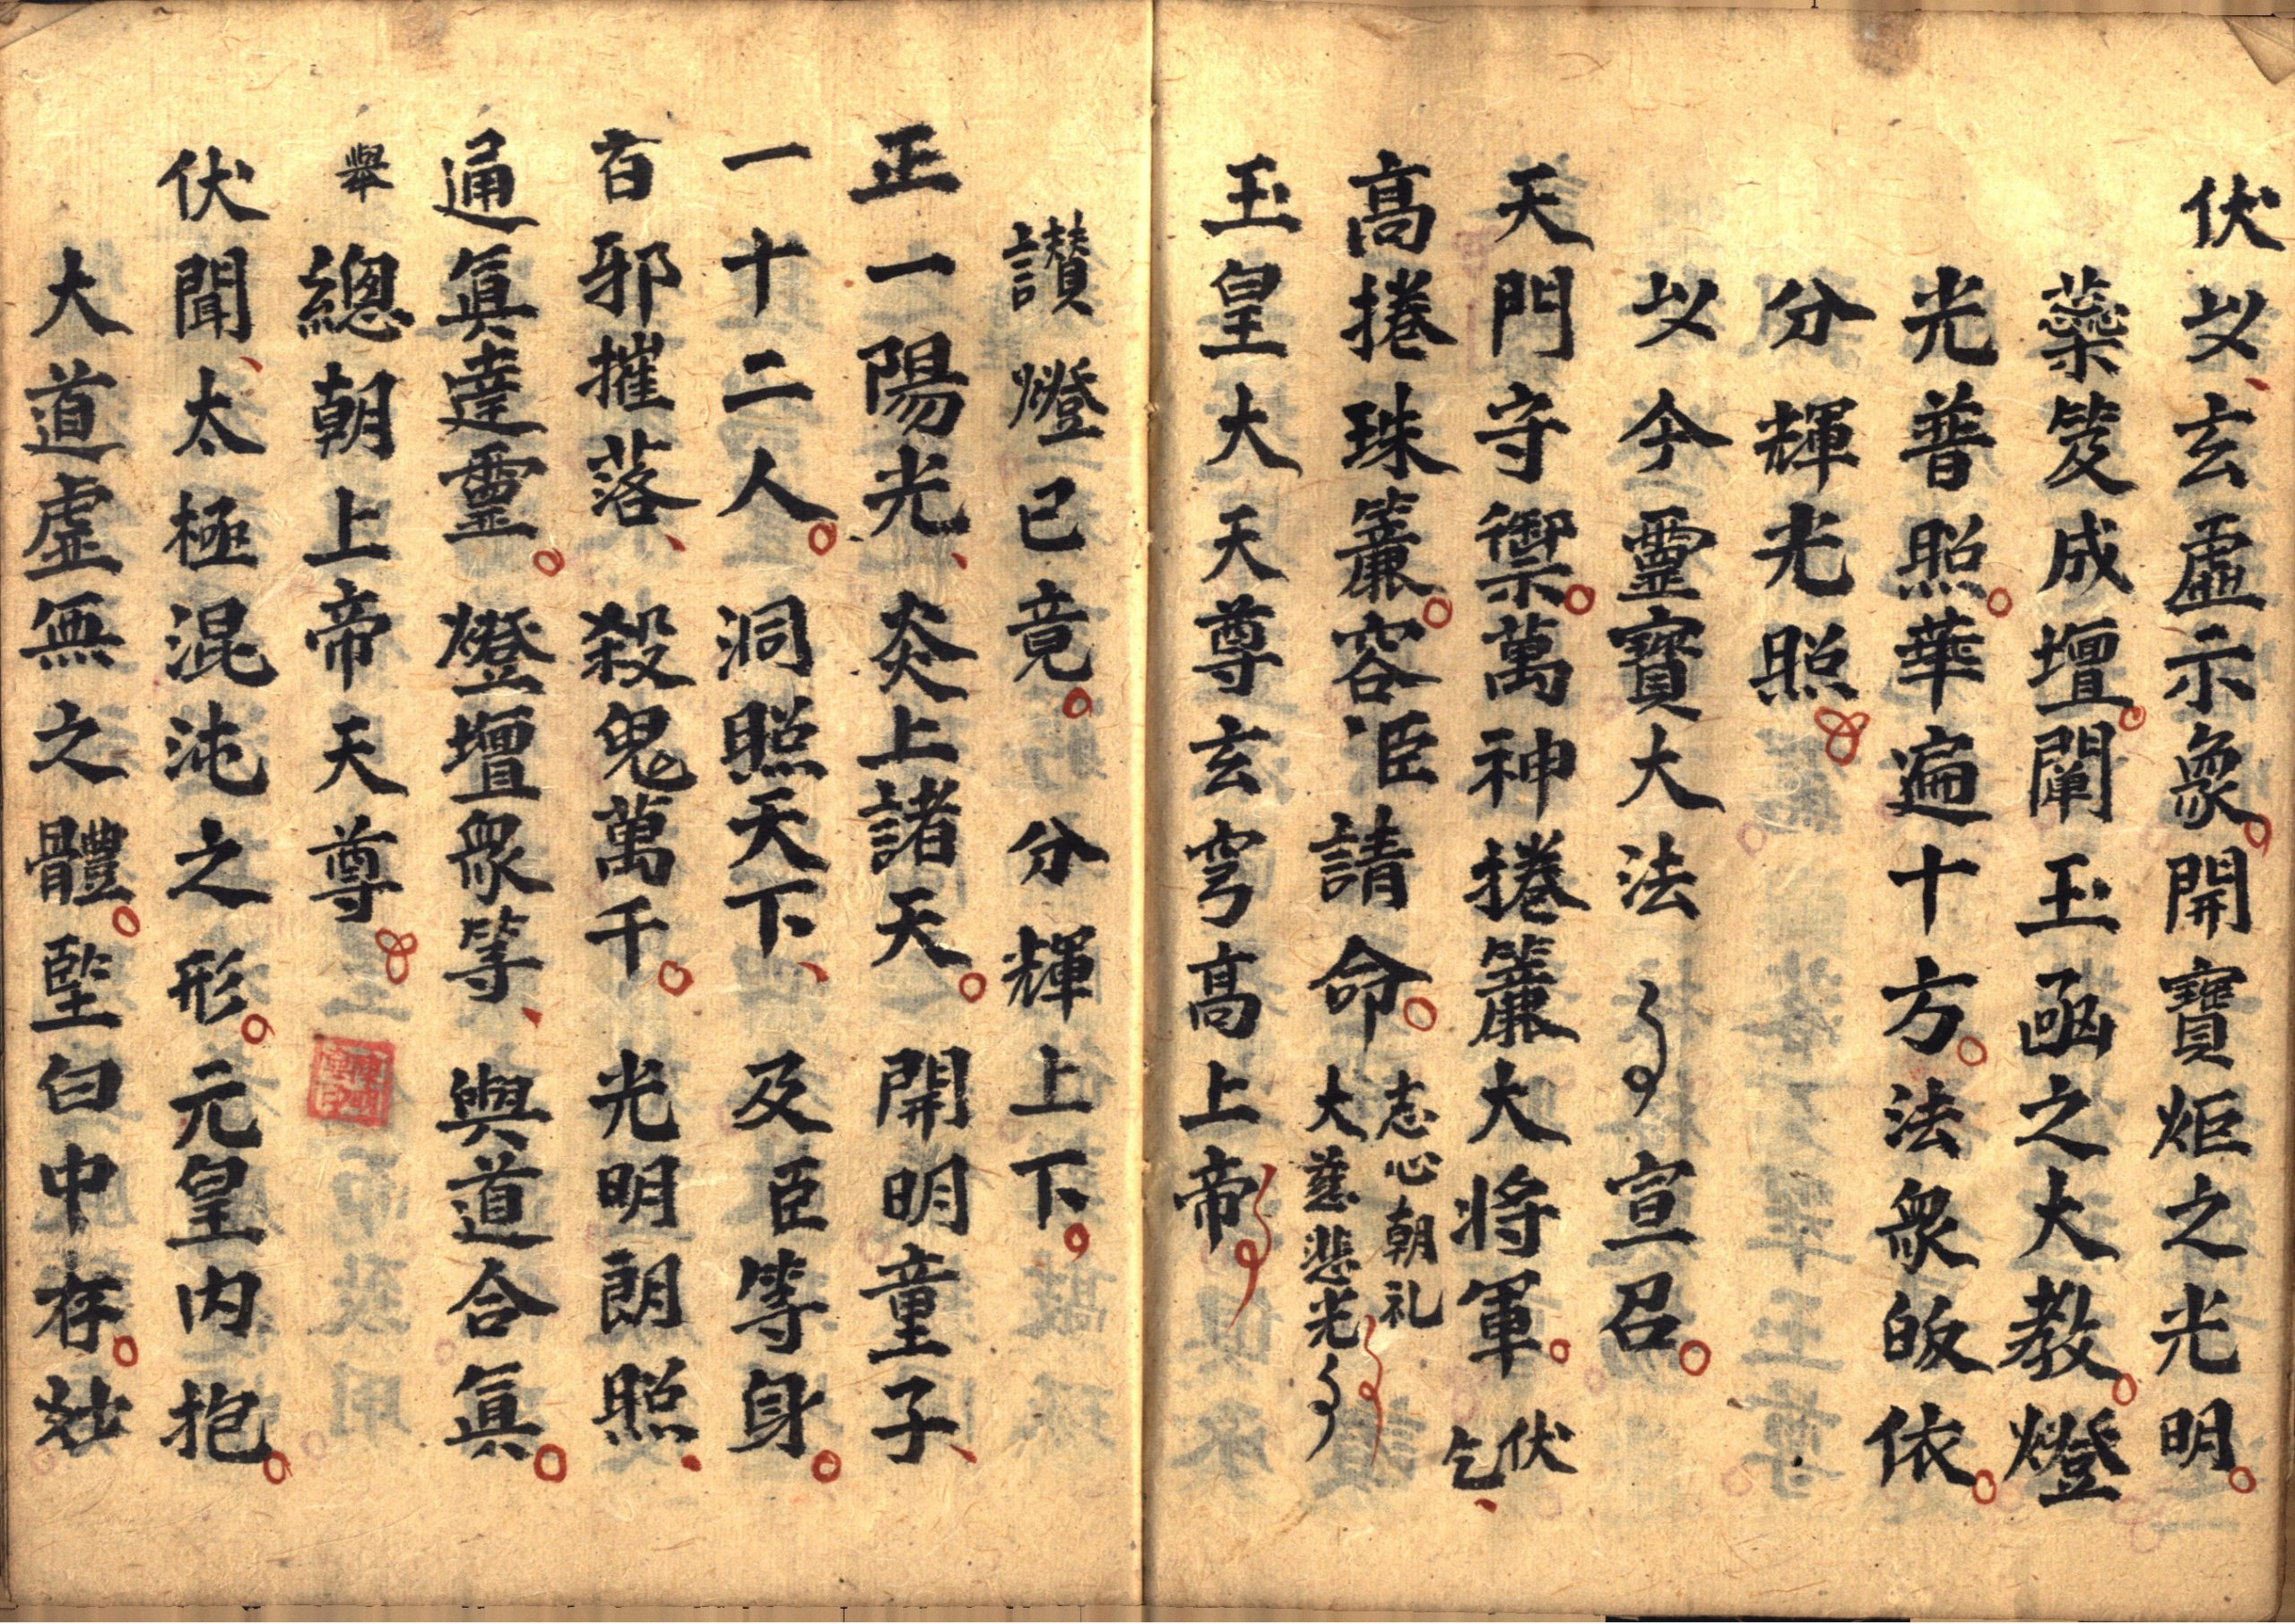 伏以玄虛示象開寶炬之光明
蘂笈成壇闡玉函之大教燈
光普照華遍十方法衆皈依
分輝光照
以今靈寶大法宣召
天門守禦萬神捲簾大將軍伏乞
高捲珠簾容臣請命志心朝礼大慈悲光
玉皇大天尊玄穹高上帝
讃燈已竟分輝上下
正一陽光炎上諸天開明童子
一十二人洞照天下及臣等身
百邪摧落殺鬼萬千光明朗照
通眞達靈燈壇衆等與道合眞
舉總朝上帝天尊
伏聞太極混沌之形元皇内抱
大道虛無之體堅白中存